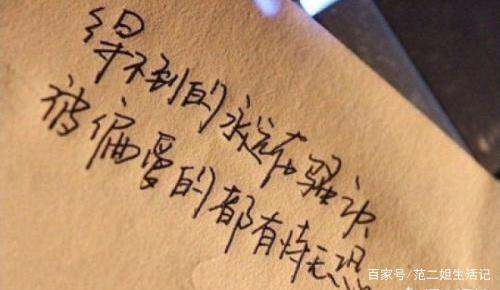 得不到的永远在骚动
被偏爱的都有恃无恐
百家号/范二姐生活记